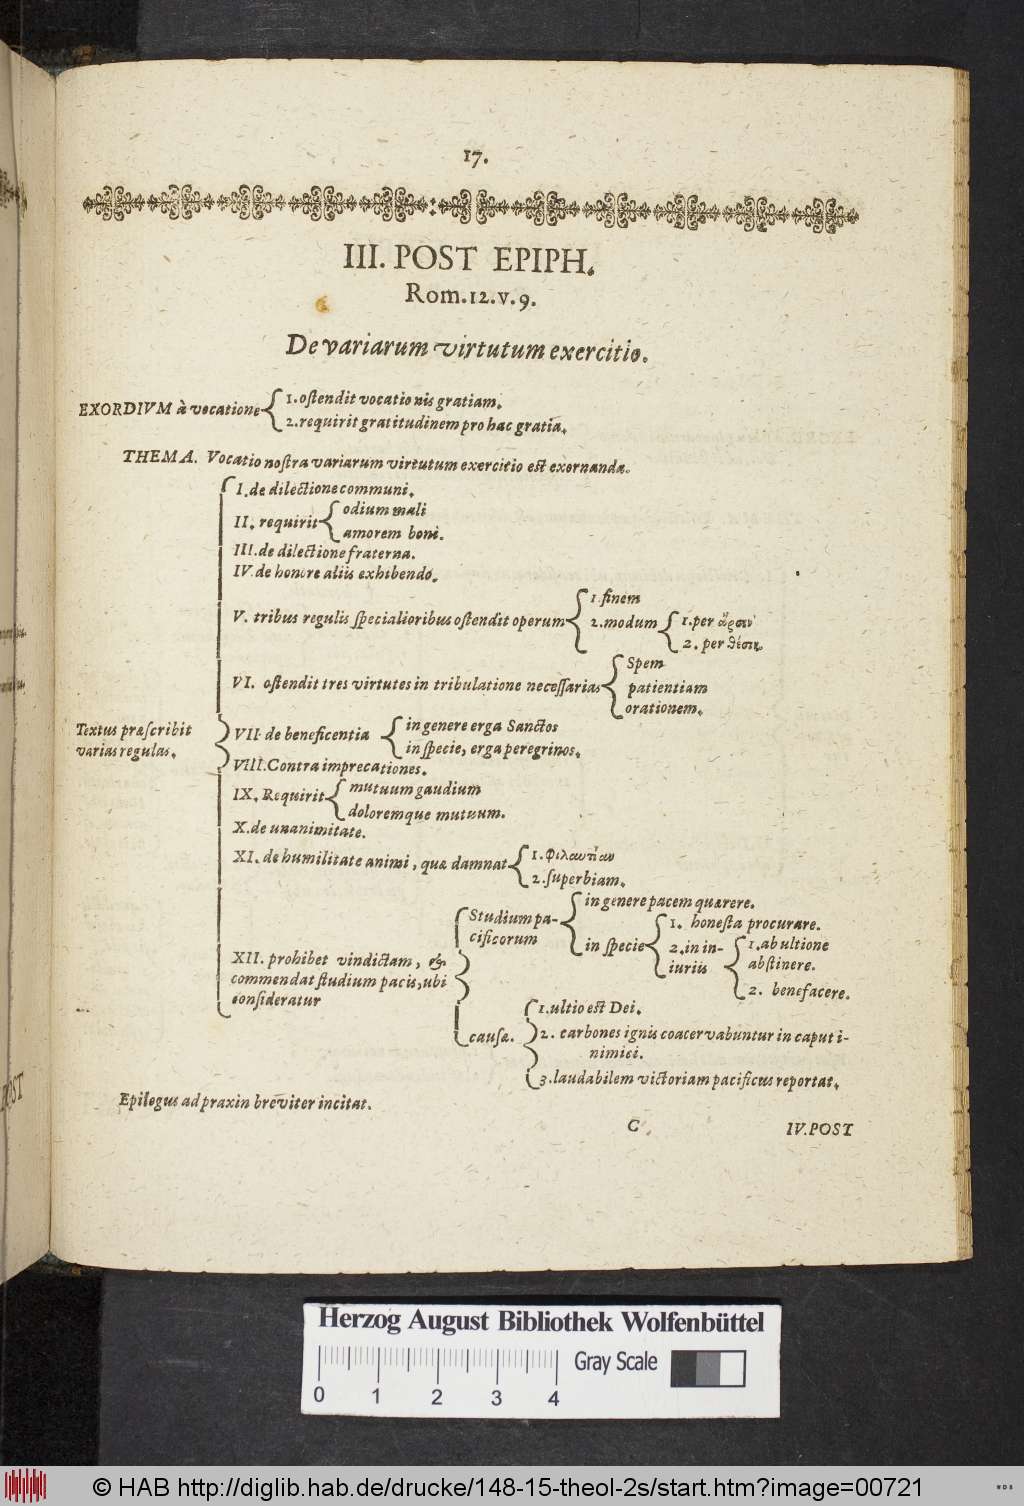 17.
III. POST EPIPH.
Rom. 12. v. 9.
De variarum virtutum exercitio.
EXORDIVM à vocatione
1. oſtendit vocationis gratiam.
2. requirit gratitudinem pro hac gratia.
THEMA. Vocatio noſtra variarum virtutum exercitio eſt exornanda.
Textus præſcribit
varias regulas.
I. de dilectione communi.
II. requirit
odium mali
amorem boni.
III. de dilectione fraterna.
IV. de honore aliis exhibendo.
V. tribus regulis ſpecialioribus oſtendit operum
1. finem
2. modum
1. per ἄρσιν
2. per θέσιν
VI. oſtendit tres virtutes in tribulatione neceſſarias
Spem
patientiam
orationem.
VII. de beneficentia
in genere erga Sanctos
in ſpecie, erga peregrinos.
VIII. Contra imprecationes.
IX. Requirit
mutuum gaudium
doloremque mutuum.
X. de unanimitate.
XI. de humilitate animi, quæ damnat
1. φιλαυτίαν
2. ſuperbiam.
XII. prohibet vindictam, &
commendat ſtudium pacis, ubi
conſideratur
Studium pa-
cificorum
in genere pacem quærere.
in ſpecie
1. honeſta procurare.
2. in in-
iuriis
1. ab ultione
abſtinere.
2. benefacere.
cauſæ.
1. ultio eſt Dei.
2. carbones ignis coacervabuntur in caput i-
nimici.
3. laudabilem victoriam pacificus reportat.
Epilogus ad praxin breviter incitat.
C
IV. POST
POST
Herzog August Bibliothek Wolfenbüttel
Gray Scale
0 1 2 3 4
© HAB http://diglib.hab.de/drucke/148-15-theol-2s/start.htm?image=00721